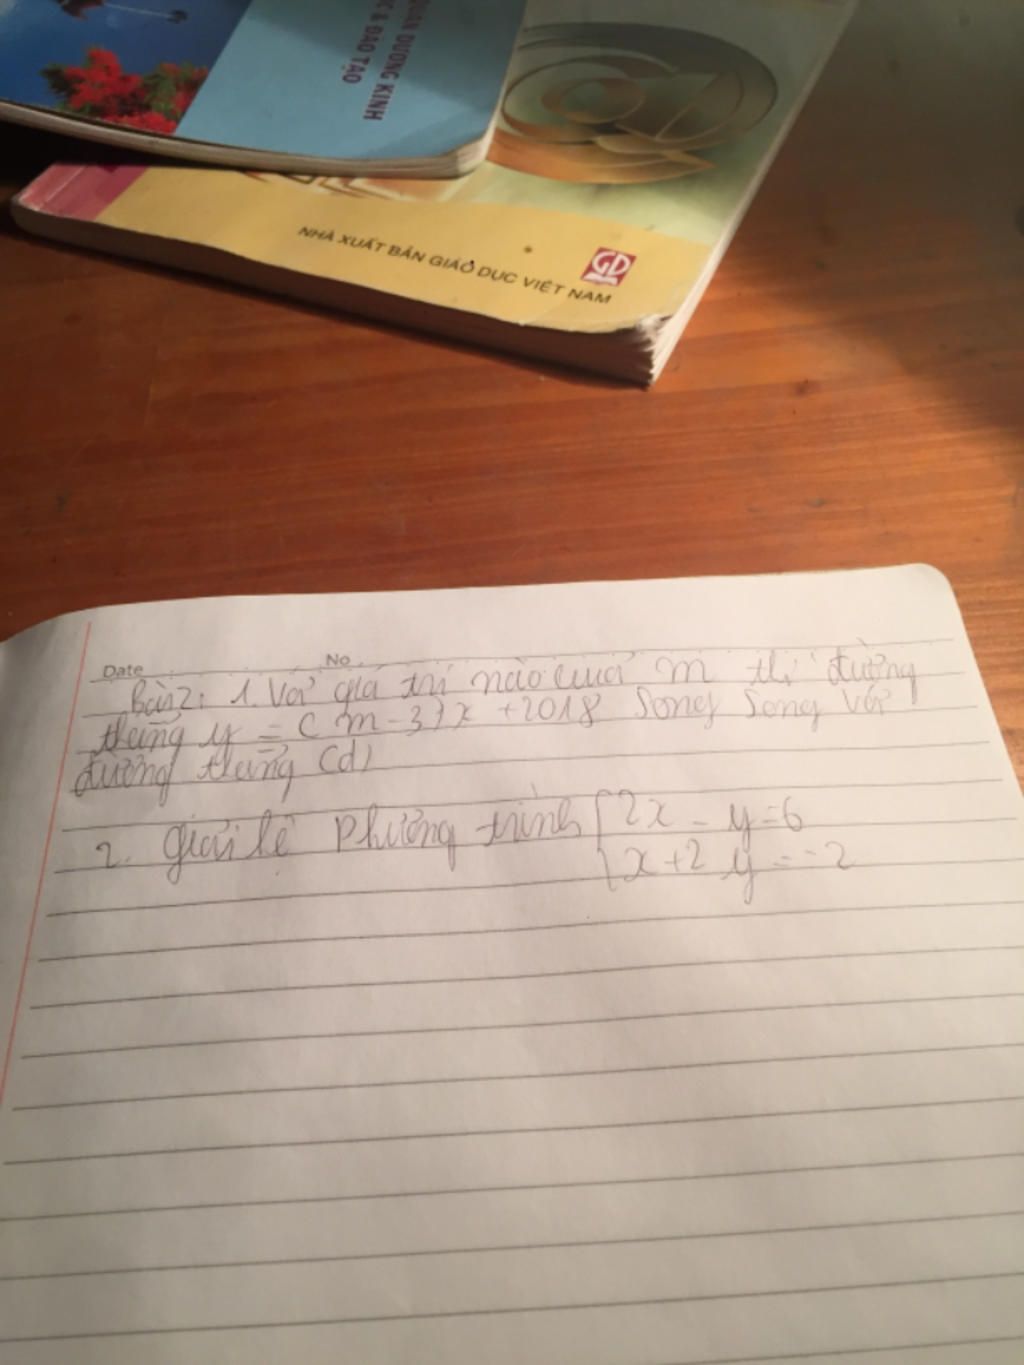 QUẬN DƯƠNG KINH
C & ĐÀO TẠO
NHÀ XUẤT BẢN GIÁO DỤC VIỆT NAM
GD
Date No
Bài 2: 1. Với giá trị nào của m thì đường
thẳng y = (m-3)x + 2018 song song với
đường thẳng (d)
2. Giải hệ phương trình { 2x - y = 6
x + 2y = -2